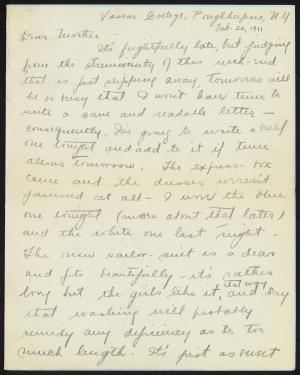 Vassar College, Poughkeepsie, N.Y.
Feb. 20, 1911
Dear Mother -
It's frightfully late, but judging
from the strenuosity of this week-end
that is just slipping away, tomorrow will
be so busy that I won't have time to
write a sane and readable letter -
consequently, I'm going to write a brief
one tonight and add to it if time
allows tomorrow. The express-box
came and the dresses weren't
jammed at all - I wore the blue
one tonight (more about that later)
and the white one last night.
The new sailor-suit is a dear
and fits beautifully - it's rather
long but the girls like it that way, and say
that washing will probably
remedy any deficiency as to too
much length. It's just as sweet